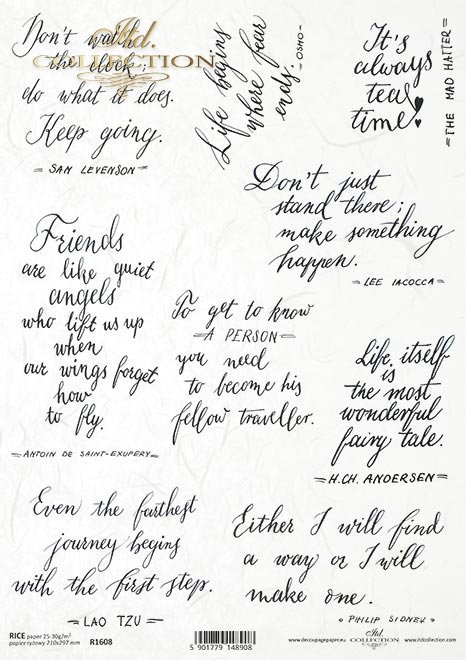 Don't watch
the clock;
do what it does.
Keep going.
= SAN LEVENSON =
Itd.
COLLECTION
Life begins
where fear
ends.
- OSHO -
It's
always
tea
time!
= THE MAD HATTER =
Don't just
stand there;
make something
happen.
= LEE IACOCCA =
Friends
are like quiet
angels
who lift us up
when
our wings forget
how
to fly.
= ANTOIN DE SAINT-EXUPERY =
To get to know
= A PERSON =
you need
to become his
fellow traveller.
Life itself
is
the most
wonderful
fairy tale.
= H.CH. ANDERSEN =
Even the farthest
journey begins
with the first step.
= LAO TZU =
Either I will find
a way or I will
make one.
• PHILIP SIDNEY •
RICE paper 25-30g/m²
papier ryżowy 210x297 mm
R1608
5 901779 148908
www.decoupagepaper.eu
Itd.
COLLECTION
www.itdcollection.com